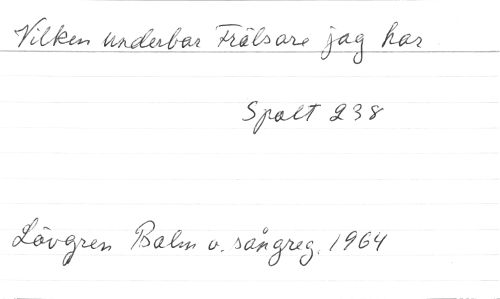 Vilken underbar Frälsare jag har
Spalt 238
Lövgren Psalm o. sångreg. 1964